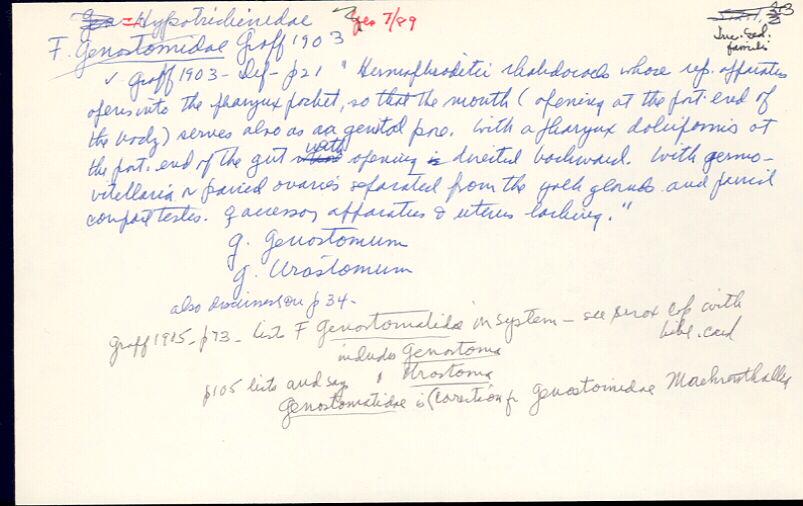 = Hypotrichinidae Geo 7/89
Inc. Sed.
families
F. Genostomidae Graff 1903
✓ Graff 1903 - Def - p21 " Hermaphroditic rhabdocoels whose rep. apparatus
opens into the pharynx pocket, so that the mouth (opening at the post. end of
the body) serves also as a genital pore. With a pharynx doliiformis at
the post. end of the gut with opening directed backward. With germo-
vitellaria or paired ovaries separated from the yolk glands and paired
compact testes. ♀ accessory apparatus & uterus lacking."
g. Genostomum
g. Urostomum
also discussed on p 34-
Graff 1905 - p73 - list F Genostomatidae in system - see xerox cp with
bibl. card
includes Genostoma
Urostoma
p105 lists and say
Genostomatidae is (correction fr Genostomidae